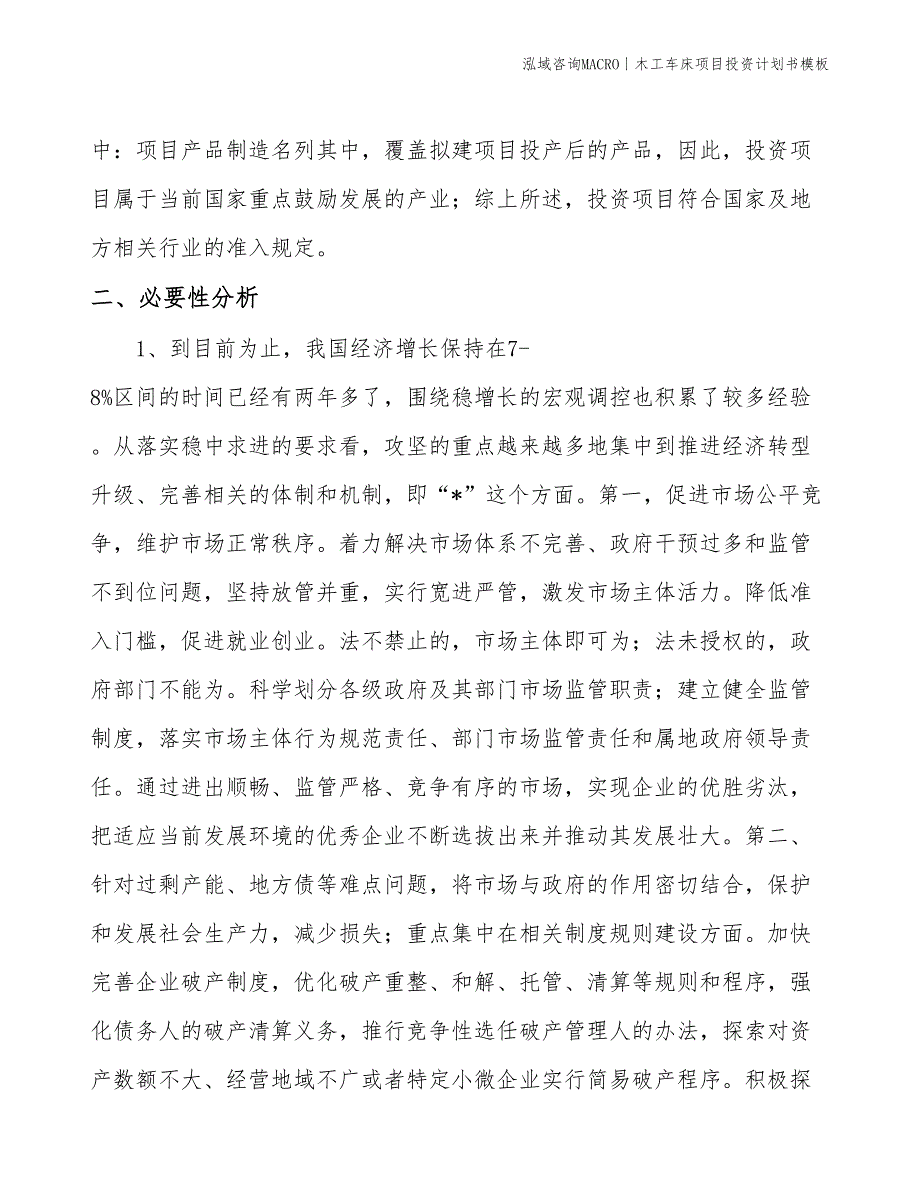 泓域咨询MACRO|木工车床项目投资计划书模板
中：项目产品制造名列其中，覆盖拟建项目投产后的产品，因此，投资项
目属于当前国家重点鼓励发展的产业；综上所述，投资项目符合国家及地
方相关行业的准入规定。
二、必要性分析
1、到目前为止，我国经济增长保持在7-
8%区间的时间已经有两年多了，围绕稳增长的宏观调控也积累了较多经验
。从落实稳中求进的要求看，攻坚的重点越来越多地集中到推进经济转型
升级、完善相关的体制和机制，即“*”这个方面。第一，促进市场公平竞
争，维护市场正常秩序。着力解决市场体系不完善、政府干预过多和监管
不到位问题，坚持放管并重，实行宽进严管，激发市场主体活力。降低准
入门槛，促进就业创业。法不禁止的，市场主体即可为；法未授权的，政
府部门不能为。科学划分各级政府及其部门市场监管职责；建立健全监管
制度，落实市场主体行为规范责任、部门市场监管责任和属地政府领导责
任。通过进出顺畅、监管严格、竞争有序的市场，实现企业的优胜劣汰，
把适应当前发展环境的优秀企业不断选拔出来并推动其发展壮大。第二、
针对过剩产能、地方债等难点问题，将市场与政府的作用密切结合，保护
和发展社会生产力，减少损失；重点集中在相关制度规则建设方面。加快
完善企业破产制度，优化破产重整、和解、托管、清算等规则和程序，强
化债务人的破产清算义务，推行竞争性选任破产管理人的办法，探索对资
产数额不大、经营地域不广或者特定小微企业实行简易破产程序。积极探